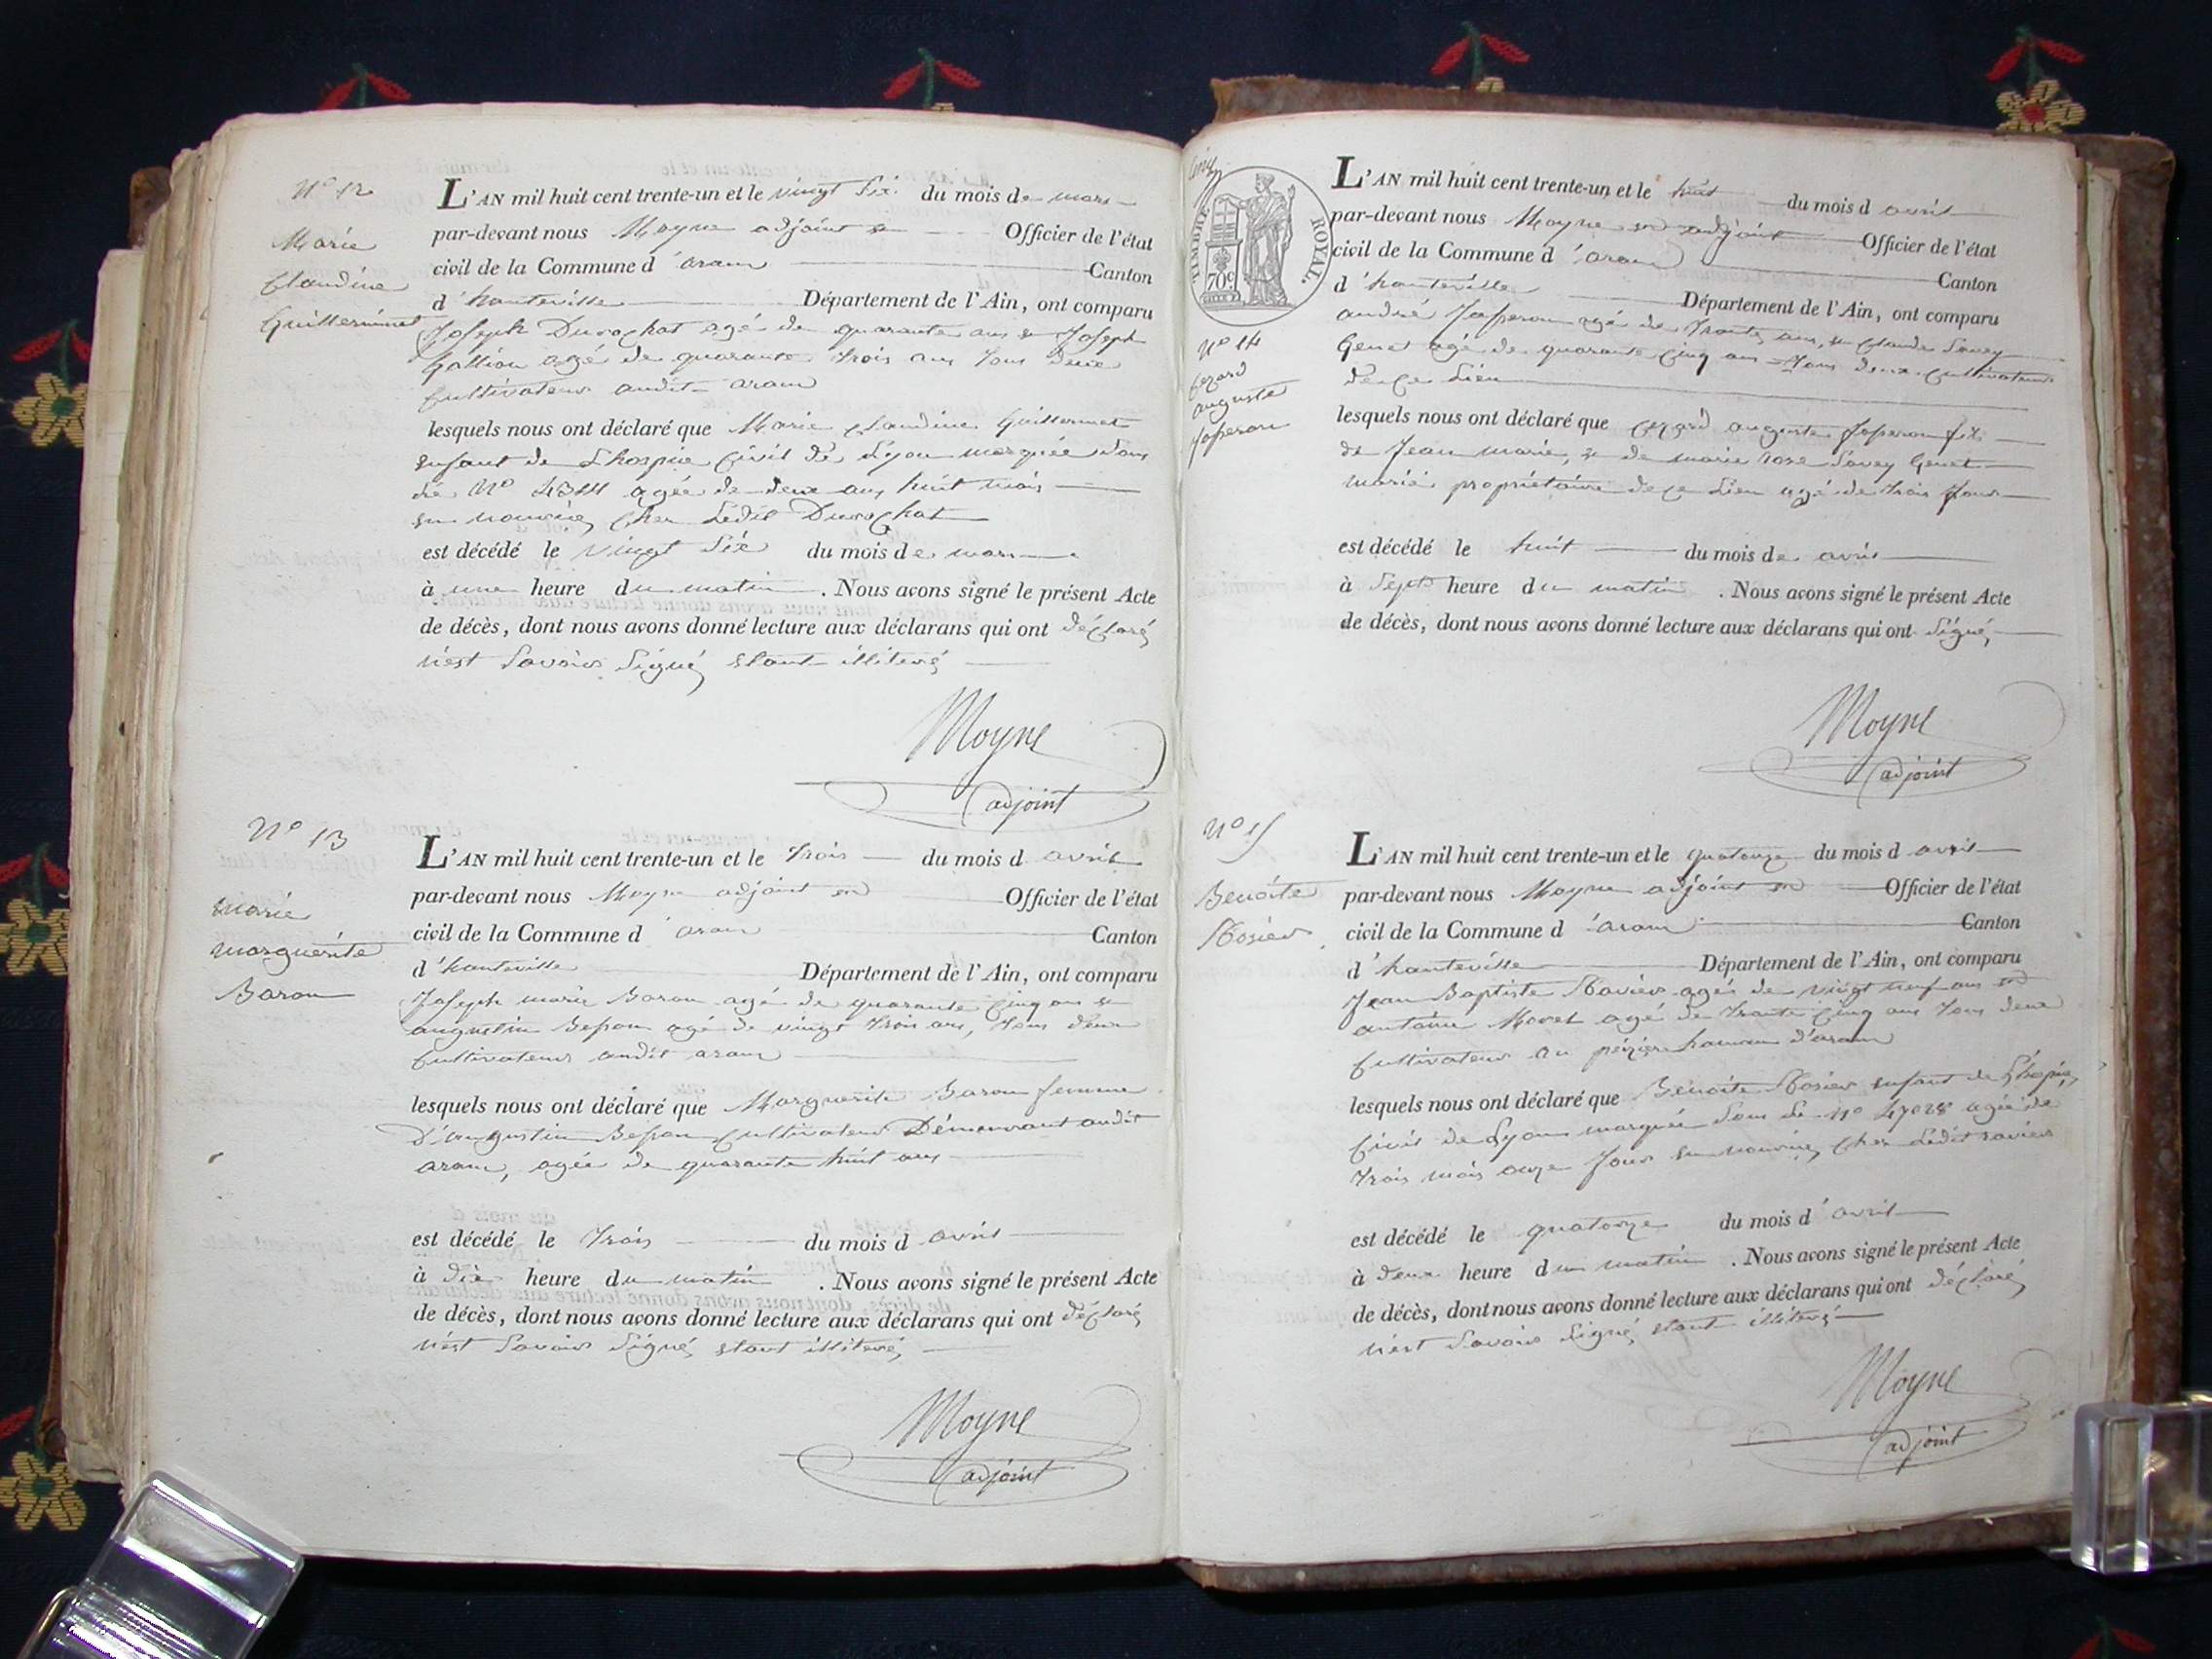 N° 12
Marie
Claudine
Guillermet
L'AN mil huit cent trente-un et le vingt six du mois de mars
par-devant nous Moyne adjoint Officier de l'état
civil de la Commune d'aranc Canton
d'hauteville Département de l'Ain, ont comparu
Joseph Durochat agé de quarante ans & Joseph
Gallion agé de quarante trois ans tous deux
cultivateurs audit aranc
lesquels nous ont déclaré que Marie Claudine Guillermet
enfant de L'hospice Civil de Lyon marquée sous
le N° agée de deux ans huit mois
en nourrice Chez Ledit Durochat
est décédé le vingt six du mois de mars
à une heure du matin . Nous avons signé le présent Acte
de décès, dont nous avons donné lecture aux déclarans qui ont déclaré
n'est savoir signé, etant illiteré
Moyne
adjoint
N° 13
marie
marguerite
Baron
L'AN mil huit cent trente-un et le trois du mois d avril
par-devant nous Moyne adjoint Officier de l'état
civil de la Commune d'aranc Canton
d'hauteville Département de l'Ain, ont comparu
Joseph marie Baron agé de quarante cinq ans &
augustin Besson agé de vingt trois ans, tous deux
Cultivateurs audit aranc
lesquels nous ont déclaré que Marguerite Baron femme
D'augustin Besson cultivateur Démeurant audit
aranc, agée de quarante huit ans
est décédé le trois du mois d avril
à dix heure du matin . Nous avons signé le présent Acte
de décès, dont nous avons donné lecture aux déclarans qui ont déclaré
n'est savoir signé, etant illiteré,
Moyne
adjoint
TIMBRE ROYAL.
70c
L'AN mil huit cent trente-un et le huit du mois d avril
par-devant nous Moyne adjoint Officier de l'état
civil de la Commune d'aranc Canton
d'hauteville Département de l'Ain, ont comparu
N° 14
Cezard
auguste
Joperon
andré Joperon agé de trente ans, & Claude Savey
Genet agé de quarante cinq ans tous deux cultivateurs
de ce Lieu
lesquels nous ont déclaré que Cezard auguste Joperon fils
de Jean marie, & de marie rose Savey Genet
mariés propriétaire de ce Lieu agé de trois jours
est décédé le huit du mois de avril
à sept heure du matin . Nous avons signé le présent Acte
de décès, dont nous avons donné lecture aux déclarans qui ont signé,
Moyne
adjoint
N° 15
Benoite
Rosier
L'AN mil huit cent trente-un et le quatorze du mois d avril
par-devant nous Moyne adjoint Officier de l'état
civil de la Commune d'aranc Canton
d'hauteville Département de l'Ain, ont comparu
Jean Baptiste Ravier agé de vingt neuf ans
antoine Morel agé de trente cinq ans tous deux
Cultivateurs au hameau d'aranc
lesquels nous ont déclaré que Benoite Rosier enfant de L'hospice
Civil de Lyon marquée sous le n° 47028 agée de
trois mois onze jours en nourrice Chez Ledit ravier
est décédé le quatorze du mois d'avril
à deux heure du matin . Nous avons signé le présent Acte
de décès, dont nous avons donné lecture aux déclarans qui ont déclaré
n'est savoir signé, etant illiteré
Moyne
adjoint